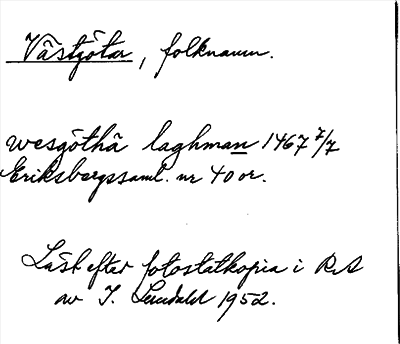 Västgötar, folknamn.
wesgöthā laghman 1467 7/7
Eriksbergssaml. nr 40 or.
Läst efter fotostatkopia i RA
av I. Lundahl 1952.